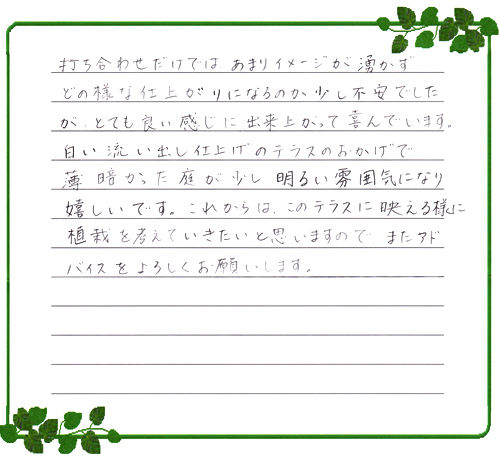 打ち合わせだけでは あまりイメージが湧かず
どの様な仕上がりになるのか少し不安でした
が、とても良い感じに出来上がって喜んでいます。
白い流い出し仕上げのテラスのおかげで
薄暗かった庭が少し明るい雰囲気になり
嬉しいです。これからは、このテラスに映える様に
植栽を考えていきたいと思いますので またアド
バイスをよろしくお願いします。